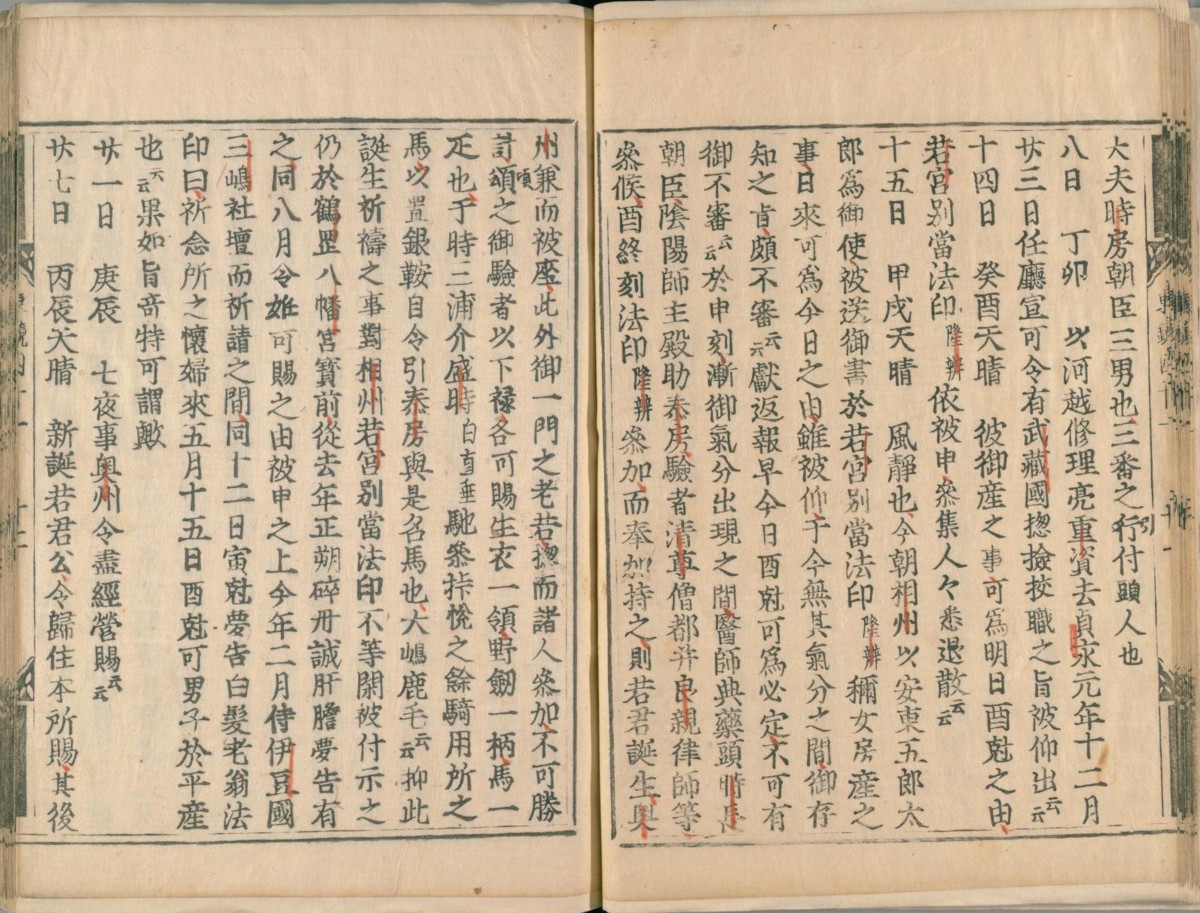 大夫時房朝臣三男也三番之引付頭人也
八日　丁卯　以河越修理亮重資去貞永元年十二月
廿三日任廳宣可令有武藏國惣撿挍職之旨被仰出云云
十四日　癸酉天晴　彼御産之事可爲明日酉尅之由
若宮別當法印隆辨依被申叅集人々悉退散云云
十五日　甲戌天晴　風靜也今朝相州以安東五郎太
郎爲御使被送御書於若宮別當法印隆辨稱女房産之
事日來可爲今日之由雖被仰于今無其氣分之間御存
知之肯頗不審云云獻返報早今日酉尅可爲必定不可有
御不審云云於申刻漸御氣分出現之間醫師典藥頭時長
朝臣陰陽師主殿助泰房驗者清尊僧都并良親律師等
叅候酉終刻法印隆辨叅加而奉加持之則若君誕生奥
州兼而被座此外御一門之老若惣而諸人叅加不可勝
計頌之御驗者以下禄各可賜生衣一領野劒一柄馬一
疋也于時三浦介盛時白直垂馳叅抃悅之餘騎用所之
馬以置銀鞍自令引泰房與是名馬也大嶋鹿毛云云抑此
誕生祈禱之事對相州若宮別當法印不等閑被付示之
仍於鶴罡八幡宮寳前從去年正朔碎丹誠肝膽夢告有
之同八月令姙可賜之由被申之上今年二月侍伊豆國
三嶋社壇而祈請之間同十二日寅尅夢告白髮老翁法
印曰祈念所之懷婦來五月十五日酉尅可男子於平産
也云云果如旨竒特可謂歟
廿一日　庚辰　七夜事奥州令盡經營賜云云
廿七日　丙辰天晴　新誕若君公令歸住本所賜其後